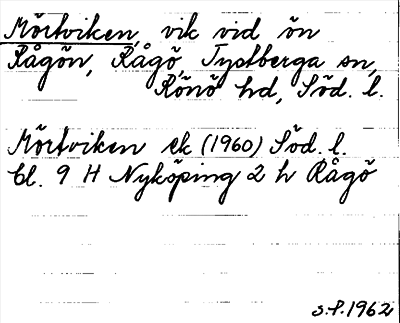 Mörtviken, vik vid ön
Rågön, Rågö, Tystberga sn,
Rönö hd, Söd. l.
Mörtviken ek (1960) Söd. l.
bl. 9 H Nyköping 2 h Rågö
s.f. 1962